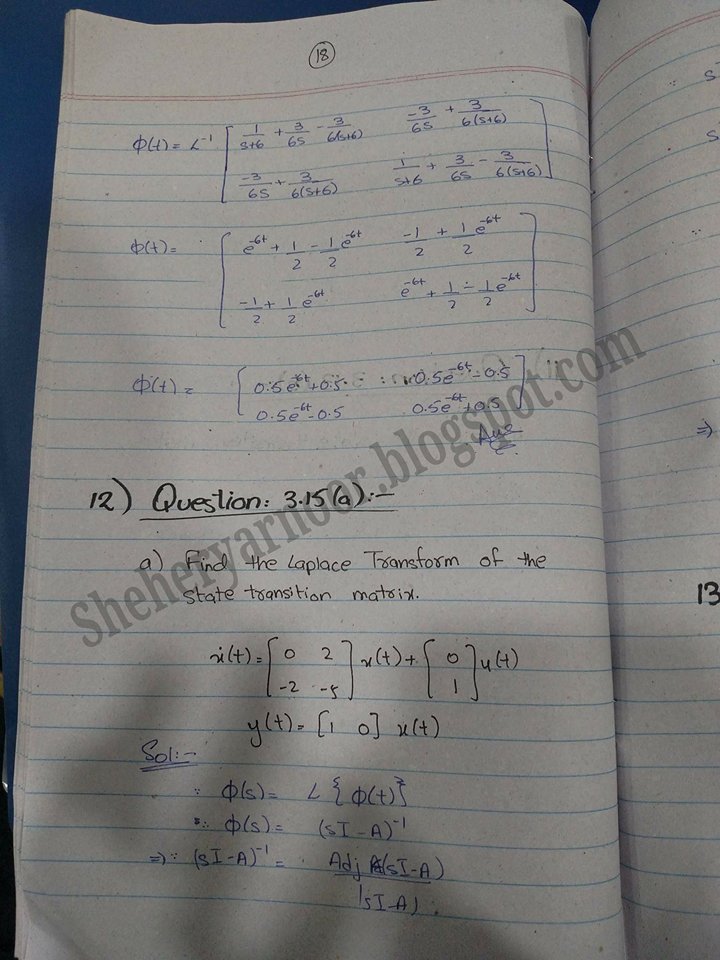 18
Φ(t) = L⁻¹ [ 1/(s+6) + 3/6s − 3/6(s+6)   −3/6s + 3/6(s+6)
−3/6s + 3/6(s+6)   1/(s+6) + 3/6s − 3/6(s+6) ]
Φ(t) = [ e^-6t + 1/2 − 1/2 e^-6t   −1/2 + 1/2 e^-6t
−1/2 + 1/2 e^-6t   e^-6t + 1/2 − 1/2 e^-6t ]
Φ(t) = [ 0.5e^-6t + 0.5   0.5e^-6t − 0.5
0.5e^-6t − 0.5   0.5e^-6t + 0.5 ]
Ans
Sheheryarnoor.blogspot.com
12) Question: 3.15(a):-
a) Find the Laplace Transform of the
state transition matrix.
ẋ(t) = [ 0 2
-2 -5 ] x(t) + [ 0
1 ] u(t)
y(t) = [1 0] x(t)
Sol:-
∵ Φ(s) = L{Φ(t)}
∵ Φ(s) = (sI-A)⁻¹
=> ∵ (sI-A)⁻¹ = Adj (sI-A)
|sI-A|
s
s
=>
13